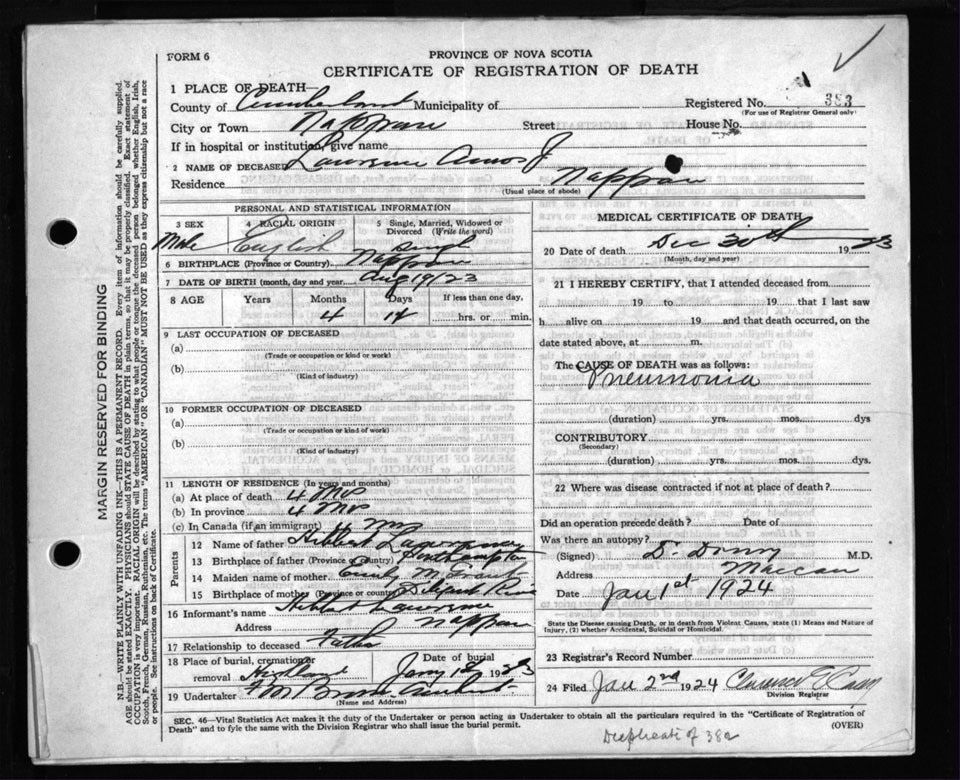 FORM 6
PROVINCE OF NOVA SCOTIA
CERTIFICATE OF REGISTRATION OF DEATH
1 PLACE OF DEATH
County of Cumberland Municipality of
Registered No. 383
(For use of Registrar General only)
City or Town Nappan Street House No.
If in hospital or institution, give name
2 NAME OF DECEASED Lawrence Amos J
Residence Nappan
(Usual place of abode)
PERSONAL AND STATISTICAL INFORMATION
3 SEX Male
4 RACIAL ORIGIN English
5 Single, Married, Widowed or Divorced (Write the word) Single
6 BIRTHPLACE (Province or Country) Nappan
7 DATE OF BIRTH (month, day and year) Aug 19/23
8 AGE Years Months Days If less than one day,
4 hrs. or min.
9 LAST OCCUPATION OF DECEASED
(a)
(Trade or occupation or kind or work)
(b)
(Kind of industry)
10 FORMER OCCUPATION OF DECEASED
(a)
(Trade or occupation or kind of work)
(b)
(Kind of industry)
11 LENGTH OF RESIDENCE (In years and months)
(a) At place of death 4 Mos
(b) In province 4 Mos
(c) In Canada (if an immigrant)
Parents
12 Name of father Lawrence
13 Birthplace of father (Province or Country) Northampton
14 Maiden name of mother
15 Birthplace of mother (Province or country)
16 Informant's name Lawrence
Address Nappan
17 Relationship to deceased Father
18 Place of burial, cremation or removal
Date of burial
Jany 1st 1923
19 Undertaker
(Name and Address)
MEDICAL CERTIFICATE OF DEATH
20 Date of death Dec 30th 1923
(Month, day and year)
21 I HEREBY CERTIFY, that I attended deceased from
19 to 19 that I last saw
h alive on 19 and that death occurred, on the
date stated above, at m.
The CAUSE OF DEATH was as follows:
Pneumonia
(duration) yrs. mos. dys
CONTRIBUTORY
(Secondary)
(duration) yrs. mos. dys.
22 Where was disease contracted if not at place of death?
Did an operation precede death? Date of
Was there an autopsy?
(Signed) M.D.
Address Maccan
Date Jan 1st 1924
State the Disease causing Death, or in death from Violent Causes, state (1) Means and Nature of
Injury, (2) whether Accidental, Suicidal or Homicidal.
23 Registrar's Record Number
24 Filed Jan 2nd 1924 Clarence
Division Registrar
SEC. 46—Vital Statistics Act makes it the duty of the Undertaker or person acting as Undertaker to obtain all the particulars required in the "Certificate of Registration of
Death" and to fyle the same with the Division Registrar who shall issue the burial permit.
(OVER)
Duplicate of 382
MARGIN RESERVED FOR BINDING
N.B.—WRITE PLAINLY WITH UNFADING INK—THIS IS A PERMANENT RECORD. Every item of information should be carefully supplied.
AGE should be stated EXACTLY. PHYSICIANS should STATE CAUSE OF DEATH in plain terms, so that it may be properly classified. Exact statement of
OCCUPATION is very important. RACIAL ORIGIN will be described by stating to what people or tongue the deceased person belonged whether English, Irish,
Scotch, French, German, Russian, Ruthenian, etc. The terms "AMERICAN" OR "CANADIAN" MUST NOT BE USED as they express citizenship but not a race
or people. See instructions on back of Certificate.